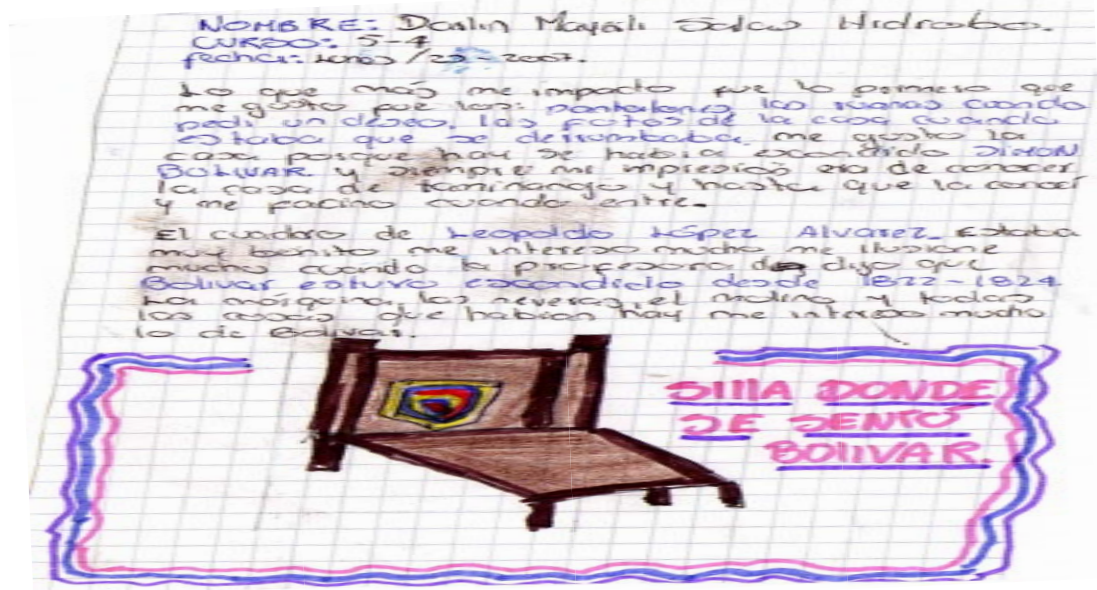 NOMBRE: Darlin Mayali Salas Hidrobo.
CURSO: 5-4
fecha: lunes /22-2007.
Lo que más me impacto fue lo primero que
me gusto fue los: pantalones, las ruanas cuando
pedi un deseo, las fotos de la casa cuando
estaba que se derrumbaba, me gusto la
casa porque hay se habia escondido SIMON
BOLIVAR. y siempre mi impresión era de conocer
la casa de taminango y hasta que la conocí
y me facino cuando entre.
El cuadro de Leopoldo López Alvarez. Estaba
muy bonito me intereso mucho me ilusione
mucho cuando la profesora dijo que
Bolivar estuvo escondido desde 1822-1824
La maquina, las neveras, el molino y todas
las cosas que habian hay me intereso mucho
lo de Bolivar.
SIllA DONDE
SE SENTÓ
BOlIVAR.